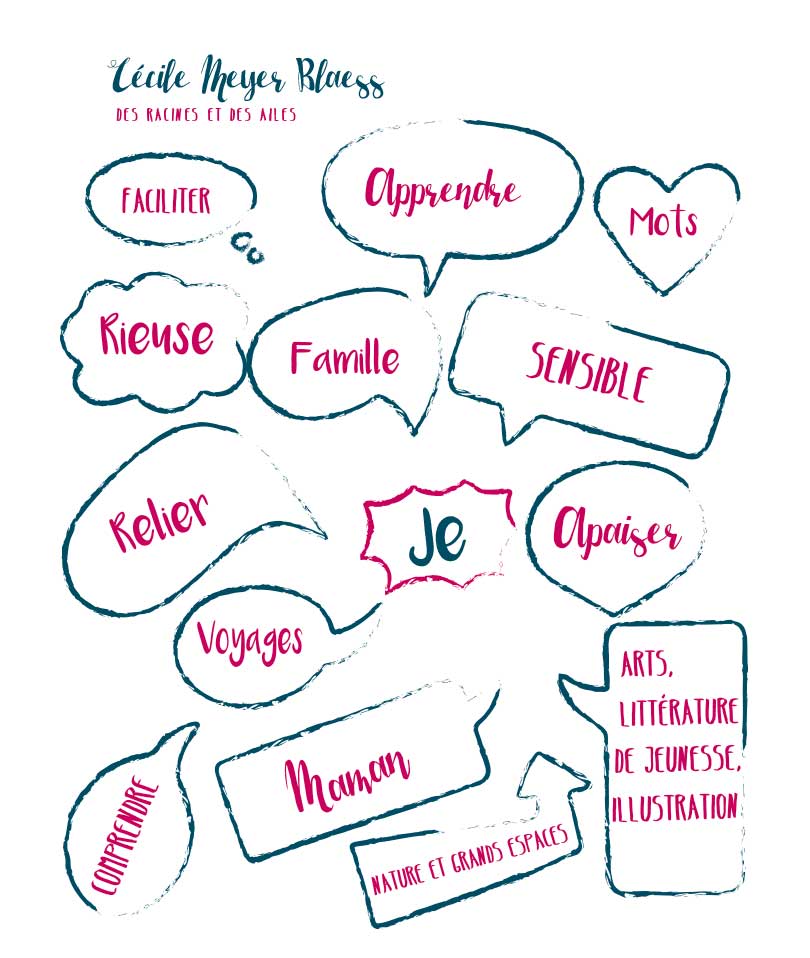 Cécile Meyer Blaess
DES RACINES ET DES AILES
FACILITER
Apprendre
Mots
Rieuse
Famille
SENSIBLE
Relier
Je
Apaiser
Voyages
ARTS,
LITTÉRATURE
DE JEUNESSE,
ILLUSTRATION
Maman
COMPRENDRE
NATURE ET GRANDS ESPACES